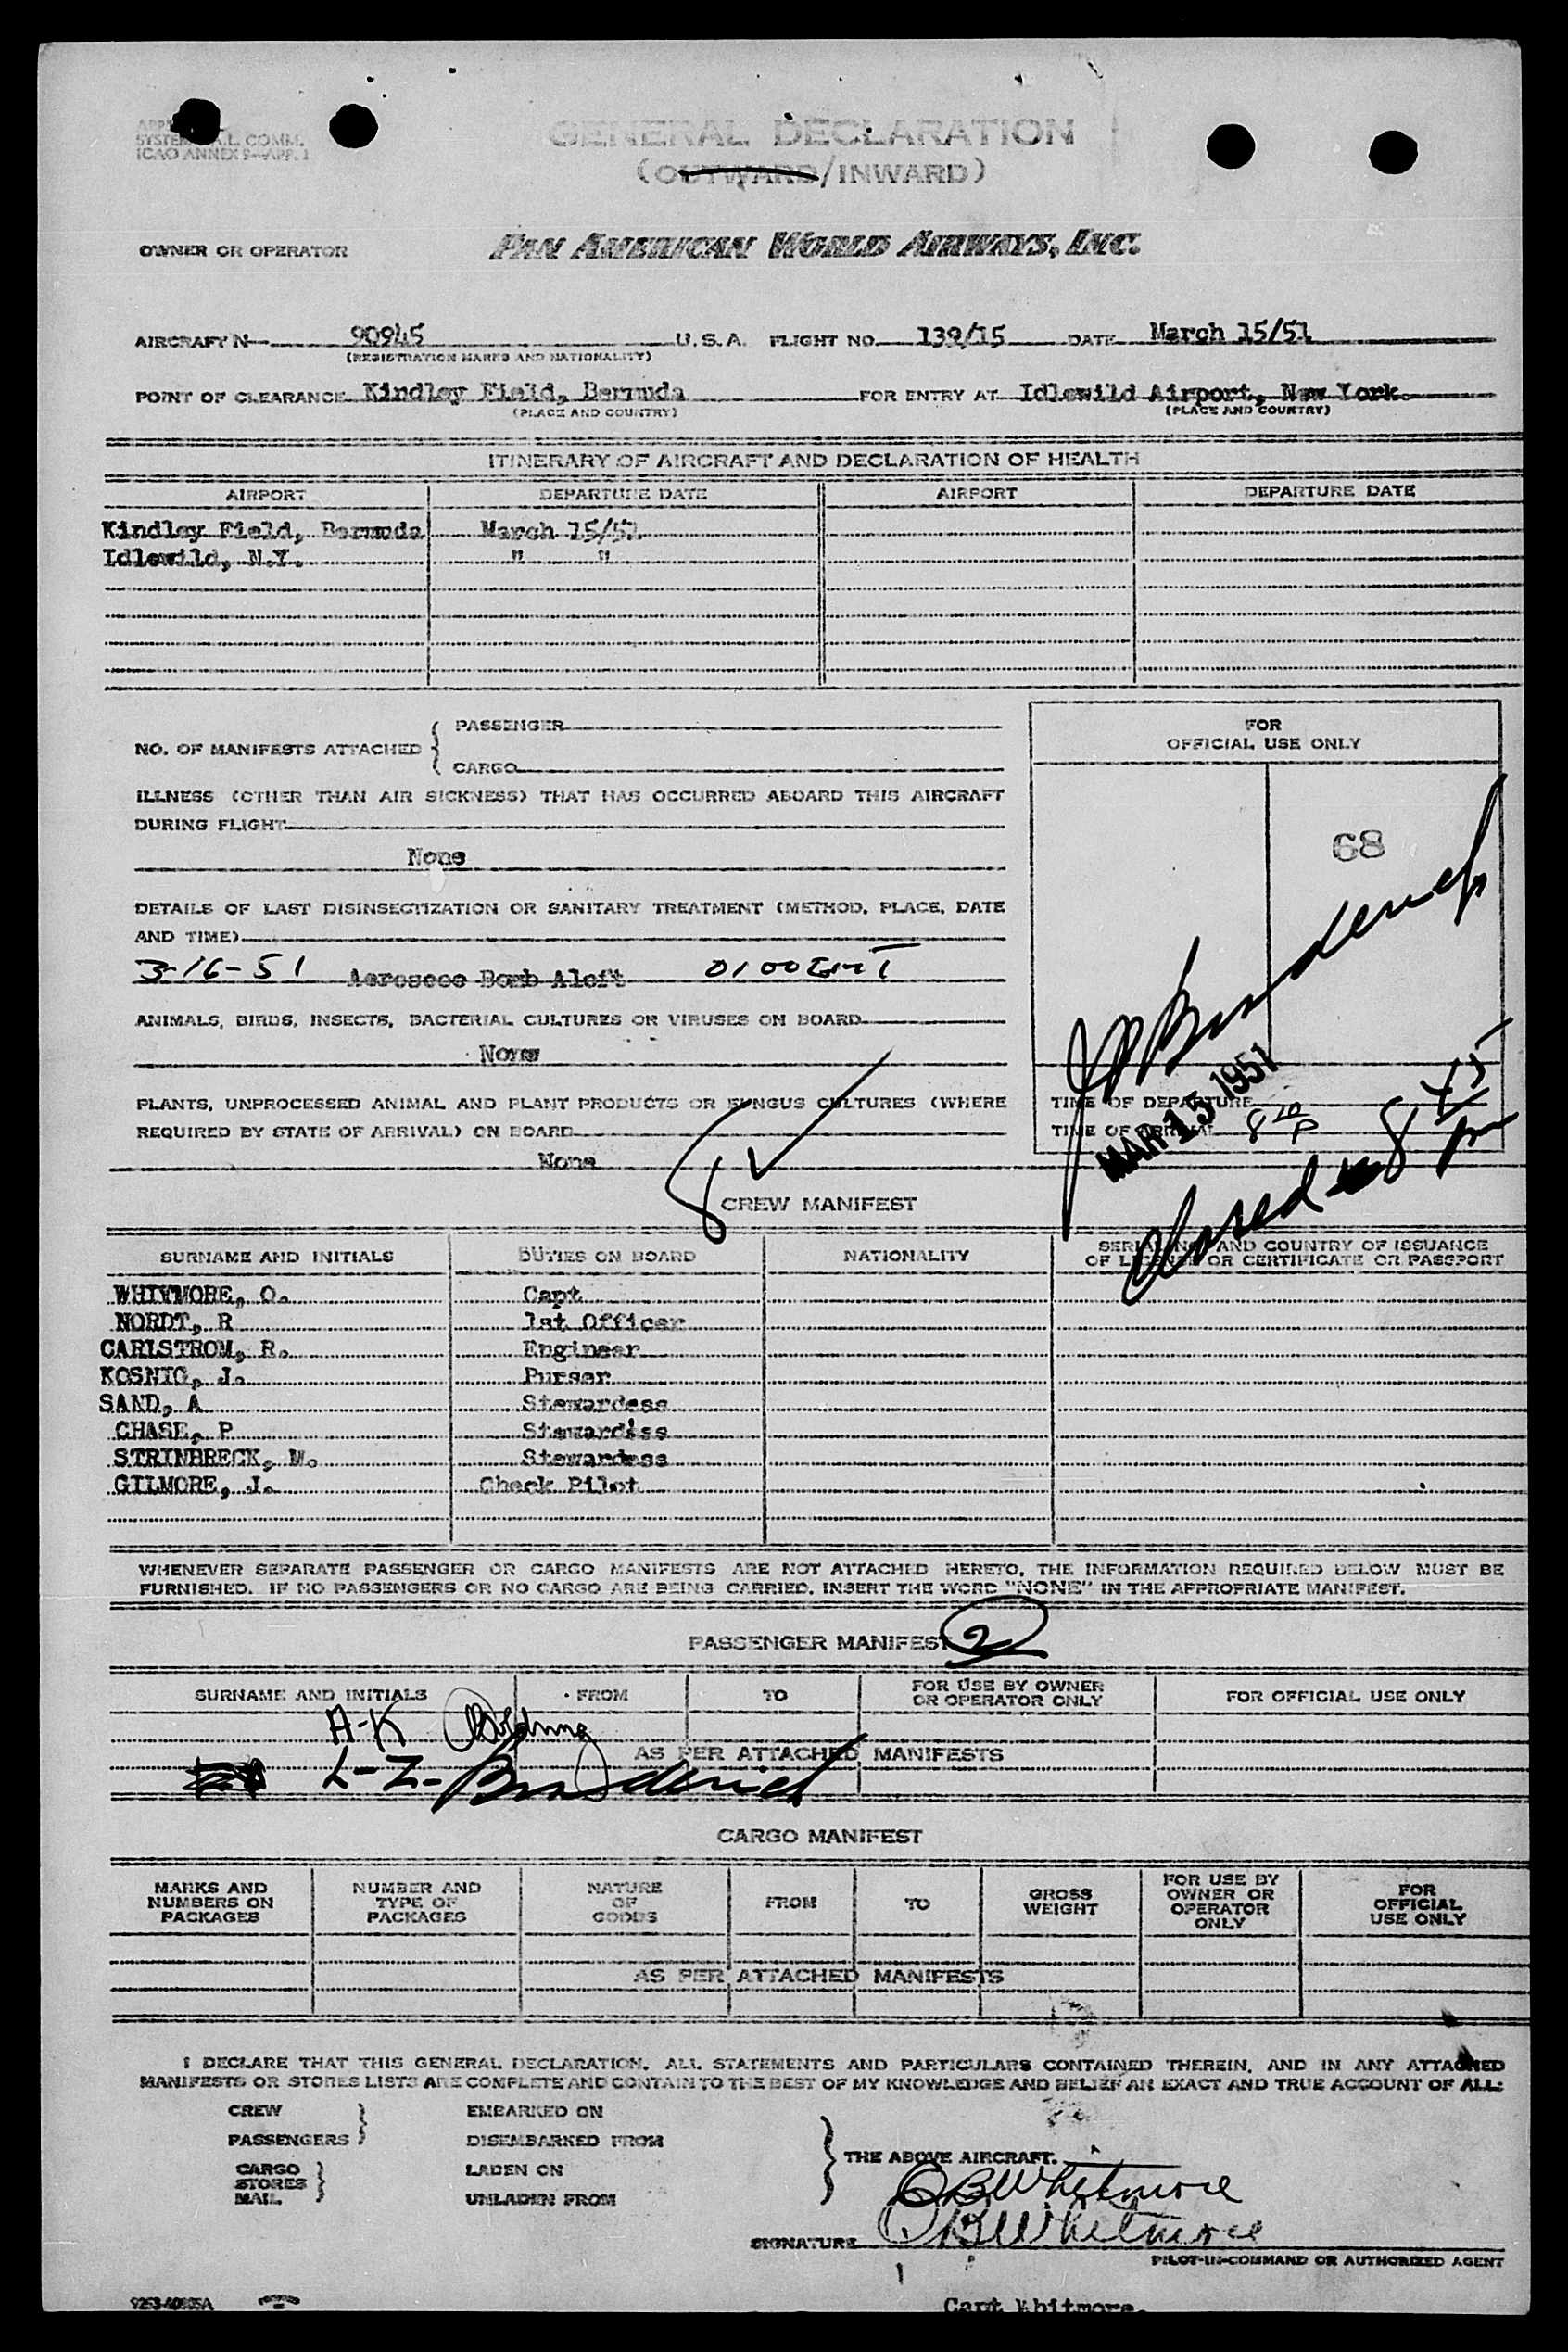 SYSTEM A.L. COMM.
ICAO ANNEX 9—APP. 1
GENERAL DECLARATION
(OUTWARD/INWARD)
OWNER OR OPERATOR PAN AMERICAN WORLD AIRWAYS, INC.
AIRCRAFT N— 90945 U.S.A. FLIGHT NO. 139/15 DATE March 15/51
(REGISTRATION MARKS AND NATIONALITY)
POINT OF CLEARANCE Kindley Field, Bermuda FOR ENTRY AT Idlewild Airport, New York.
(PLACE AND COUNTRY) (PLACE AND COUNTRY)
ITINERARY OF AIRCRAFT AND DECLARATION OF HEALTH
AIRPORT DEPARTURE DATE AIRPORT DEPARTURE DATE
Kindley Field, Bermuda March 15/51
Idlewild, N.Y. " "
NO. OF MANIFESTS ATTACHED { PASSENGER
CARGO
FOR
OFFICIAL USE ONLY
68
ILLNESS (OTHER THAN AIR SICKNESS) THAT HAS OCCURRED ABOARD THIS AIRCRAFT
DURING FLIGHT
None
DETAILS OF LAST DISINSECTIZATION OR SANITARY TREATMENT (METHOD, PLACE, DATE
AND TIME)
3-16-51 Aerosoec Bomb Aloft 0100 GMT
ANIMALS, BIRDS, INSECTS, BACTERIAL CULTURES OR VIRUSES ON BOARD
None
PLANTS, UNPROCESSED ANIMAL AND PLANT PRODUCTS OR FUNGUS CULTURES (WHERE
REQUIRED BY STATE OF ARRIVAL) ON BOARD
None
MAR 15 1951
TIME OF DEPARTURE
TIME OF ARRIVAL 8 20 P
Closed 8 45 pm
8 ✓
CREW MANIFEST
SURNAME AND INITIALS DUTIES ON BOARD NATIONALITY SERIAL NO. AND COUNTRY OF ISSUANCE
OF LICENSE OR CERTIFICATE OR PASSPORT
WHITMORE, O. Capt
NORDT, R 1st Officer
CARLSTROM, R. Engineer
KOSNIC, J. Purser
SAND, A Stewardess
CHASE, P Stewardess
STRINBRECK, M. Stewardess
GILMORE, J. Check Pilot
WHENEVER SEPARATE PASSENGER OR CARGO MANIFESTS ARE NOT ATTACHED HERETO, THE INFORMATION REQUIRED BELOW MUST BE
FURNISHED. IF NO PASSENGERS OR NO CARGO ARE BEING CARRIED, INSERT THE WORD "NONE" IN THE APPROPRIATE MANIFEST.
PASSENGER MANIFEST 2
SURNAME AND INITIALS FROM TO FOR USE BY OWNER
OR OPERATOR ONLY FOR OFFICIAL USE ONLY
A-K
AS PER ATTACHED MANIFESTS
L-Z- Broderick
CARGO MANIFEST
MARKS AND
NUMBERS ON
PACKAGES NUMBER AND
TYPE OF
PACKAGES NATURE
OF
GOODS FROM TO GROSS
WEIGHT FOR USE BY
OWNER OR
OPERATOR
ONLY FOR
OFFICIAL
USE ONLY
AS PER ATTACHED MANIFESTS
I DECLARE THAT THIS GENERAL DECLARATION, ALL STATEMENTS AND PARTICULARS CONTAINED THEREIN, AND IN ANY ATTACHED
MANIFESTS OR STORES LISTS ARE COMPLETE AND CONTAIN TO THE BEST OF MY KNOWLEDGE AND BELIEF AN EXACT AND TRUE ACCOUNT OF ALL:
CREW
PASSENGERS } EMBARKED ON
DISEMBARKED FROM
CARGO
STORES
MAIL } LADEN ON
UNLADEN FROM
} THE ABOVE AIRCRAFT.
OBWhitmore
SIGNATURE OBWhitmore
PILOT-IN-COMMAND OR AUTHORIZED AGENT
Capt Whitmore.